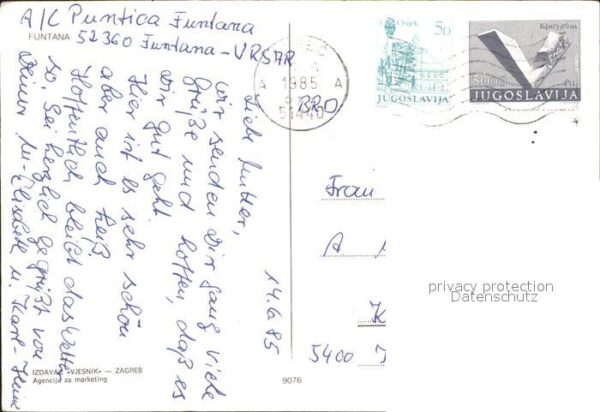 A/C Puntica Funtana
FUNTANA
52360 Funtana - VRSAR
14.6.85
Liebe Mutter,
wir senden Dir ganz viele
Grüße und hoffen, daß es
Dir gut geht.
Hier ist es sehr schön
aber auch heiß.
Hoffentlich bleibt das Wetter
so. Sei herzlich gegrüßt von
Deiner Elisabeth u. Karl-Heinz
IZDAVAČ »VJESNIK« — ZAGREB
Agencija za marketing
9076
1985
A A
51440
BRD
Osijek
50
JUGOSLAVIJA
Крагујевац
5000
JUGOSLAVIJA
Frau
A
K
5400
privacy protection
Datenschutz